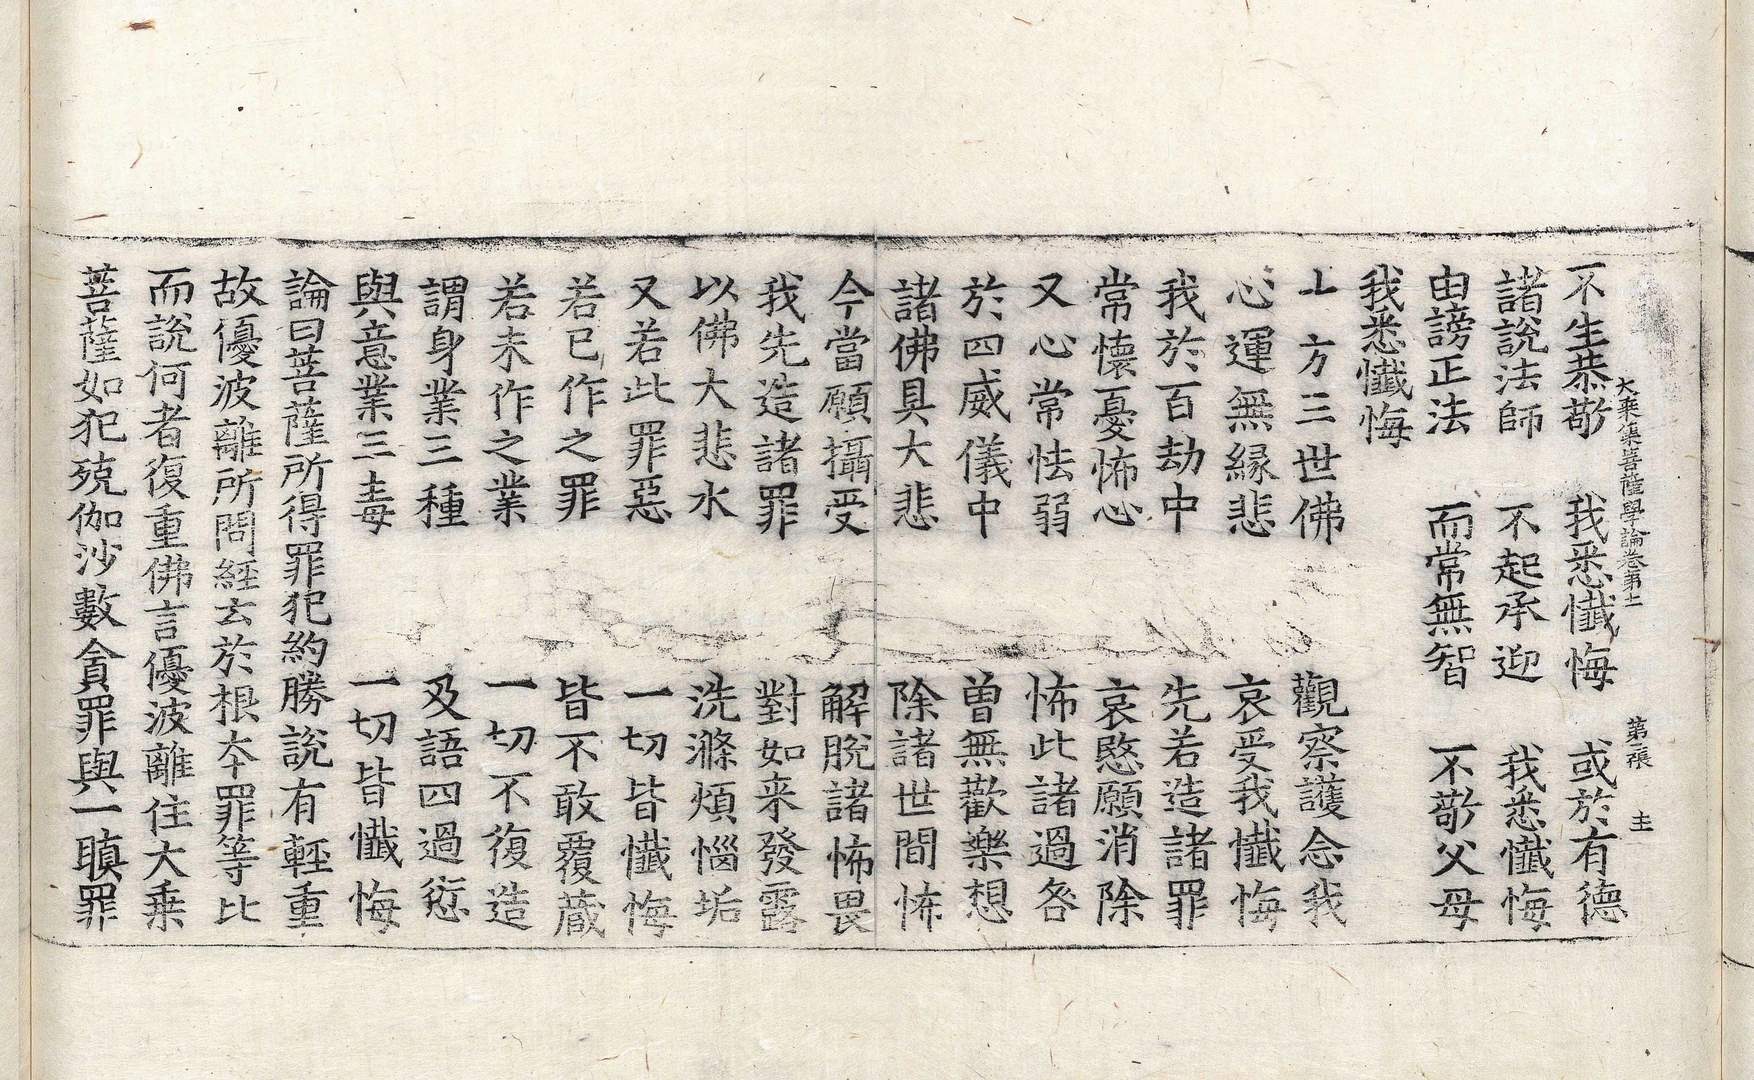 大乘集菩薩學論卷第十一 第二張 主
不生恭敬 我悉懺悔 或於有德
諸說法師 不起承迎 我悉懺悔
由謗正法 而常無智 不敬父母
我悉懺悔
十方三世佛 觀察護念我
心運無緣悲 哀受我懺悔
我於百劫中 先若造諸罪
常懷憂怖心 哀愍願消除
又心常怯弱 怖此諸過咎
於四威儀中 曾無歡樂想
諸佛具大悲 除諸世間怖
今當願攝受 解脫諸怖畏
我先造諸罪 對如来發露
以佛大悲水 洗滌煩惱垢
又若此罪惡 一切皆懺悔
若已作之罪 皆不敢覆藏
若未作之業 一切不復造
謂身業三種 及語四過愆
與意業三毒 一切皆懺悔
論曰菩薩所得罪犯約勝說有輕重
故優波離所問經云於根本罪等比
而說何者復重佛言優波離住大乗
菩薩如犯殑伽沙數貪罪與一瞋罪